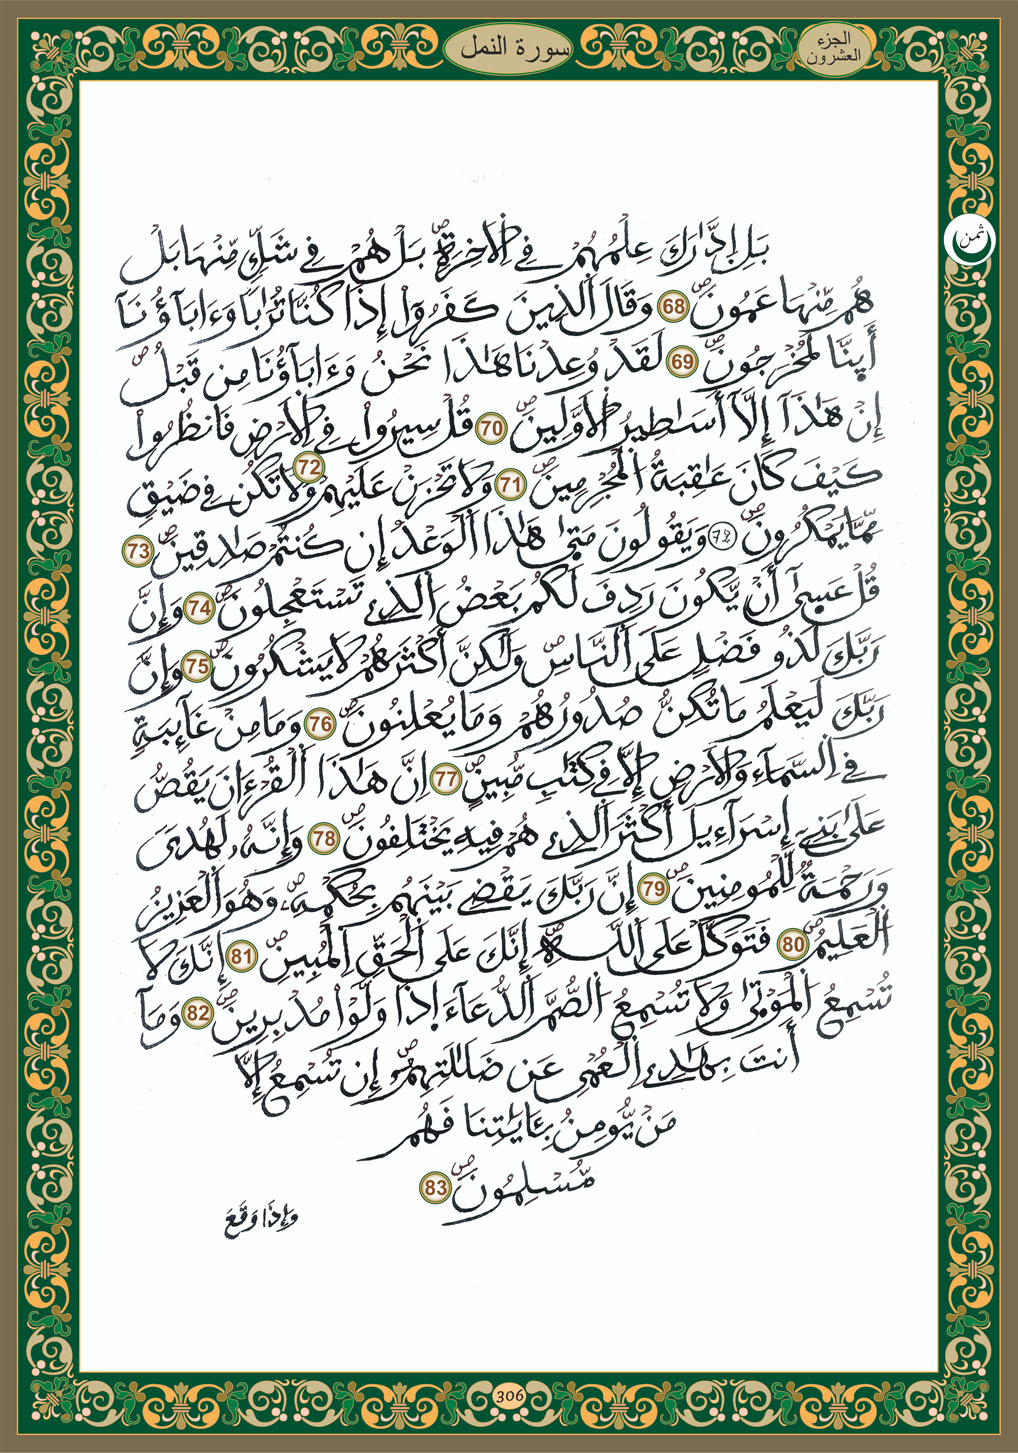 سورة النمل
الجزء
العشرون
ثمن
بَلِ اِدَّٰرَكَ عِلْمُهُمْ فِي اِ۬لَاخِرَةِۖ بَلْ هُمْ فِي شَكّٖ مِّنْهَا بَلْ
هُم مِّنْهَا عَمُونَۖ 68 وَقَالَ اَ۬لذِينَ كَفَرُوٓاْ إِذَا كُنَّا تُرَٰباٗ وَءَابَآؤُنَآ
أَئِنَّا لَمُخْرَجُونَۖ 69 لَقَدْ وُعِدْنَا هَٰذَا نَحْنُ وَءَابَآؤُنَا مِن قَبْلُۖ
إِنْ هَٰذَآ إِلَّآ أَسَٰطِيرُ اُ۬لَاوَّلِينَۖ 70 قُلْ سِيرُواْ فِي اِ۬لَارْضِ فَانظُرُواْ
كَيْفَ كَانَ عَٰقِبَةُ اُ۬لْمُجْرِمِينَۖ 71 وَلَا تَحْزَنْ عَلَيْهِمْ 72 وَلَا تَكُن فِي ضَيْقٖ
مِّمَّا يَمْكُرُونَۖ 72 وَيَقُولُونَ مَتَىٰ هَٰذَا اَ۬لْوَعْدُ إِن كُنتُمْ صَٰدِقِينَۖ 73
قُلْ عَسَىٰٓ أَنْ يَّكُونَ رَدِفَ لَكُم بَعْضُ اُ۬لذِے تَسْتَعْجِلُونَۖ 74 وَإِنَّ
رَبَّكَ لَذُو فَضْلٍ عَلَى اَ۬لنَّاسِۖ وَلَٰكِنَّ أَكْثَرَهُمْ لَا يَشْكُرُونَۖ 75 وَإِنَّ
رَبَّكَ لَيَعْلَمُ مَا تُكِنُّ صُدُورُهُمْ وَمَا يُعْلِنُونَۖ 76 وَمَا مِنْ غَآئِبَةٖ
فِي اِ۬لسَّمَآءِ وَالَارْضِ إِلَّا فِي كِتَٰبٖ مُّبِينٍۖ 77 اِنَّ هَٰذَا اَ۬لْقُرْءَانَ يَقُصُّ
عَلَىٰ بَنِےٓ إِسْرَآءِيلَ أَكْثَرَ اَ۬لذِے هُمْ فِيهِ يَخْتَلِفُونَۖ 78 وَإِنَّهُۥ لَهُدىٗ
وَرَحْمَةٞ لِّلْمُومِنِينَۖ 79 إِنَّ رَبَّكَ يَقْضِے بَيْنَهُم بِحُكْمِهِۦۖ وَهُوَ اَ۬لْعَزِيزُ
اُ۬لْعَلِيمُۖ 80 فَتَوَكَّلْ عَلَى اَ۬للَّهِۖ إِنَّكَ عَلَى اَ۬لْحَقِّ اِ۬لْمُبِينِۖ 81 إِنَّكَ لَا
تُسْمِعُ اُ۬لْمَوْتَىٰ وَلَا تُسْمِعُ اُ۬لصُّمَّ اَ۬لدُّعَآءَ اِذَا وَلَّوْاْ مُدْبِرِينَۖ 82 وَمَآ
أَنتَ بِهَٰدِے اِ۬لْعُمْيِ عَن ضَلَٰلَتِهِمُۥٓۖ إِن تُسْمِعُ إِلَّا
مَنْ يُّومِنُ بِـَٔايَٰتِنَا فَهُم
مُّسْلِمُونَۖ 83
وَإِذَا وَقَعَ
306